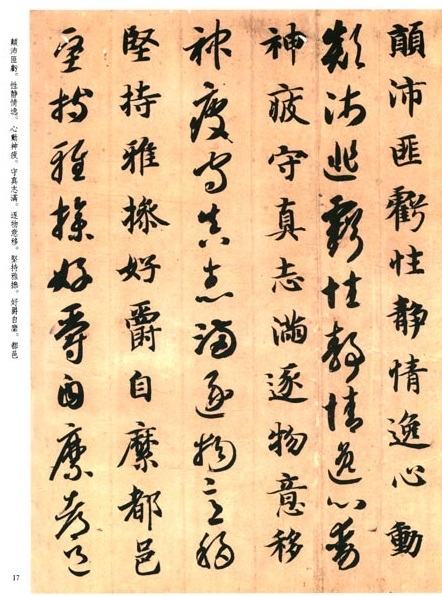 顛沛匪虧性静情逸心動
顛沛匪虧性静情逸心動
神疲守真志滿逐物意移
神疲守真志滿逐物意移
堅持雅操好爵自縻都邑
堅持雅操好爵自縻都邑
顛沛匪虧。性静情逸。心動神疲。守真志滿。逐物意移。堅持雅操。好爵自縻。都邑
17